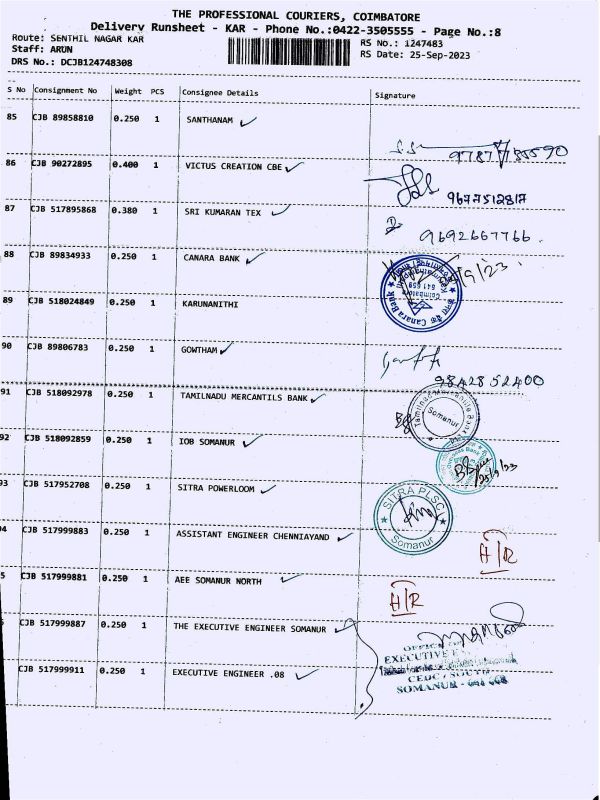 THE PROFESSIONAL COURIERS, COIMBATORE
Delivery Runsheet - KAR - Phone No.:0422-3505555 - Page No.:8
Route: SENTHIL NAGAR KAR
RS No.: 1247483
Staff: ARUN
RS Date: 25-Sep-2023
DRS No.: DCJB124748308
S No Consignment No Weight PCS Consignee Details Signature
85 CJB 89858810 0.250 1 SANTHANAM
86 CJB 90272895 0.400 1 VICTUS CREATION CBE
9677512817
87 CJB 517895868 0.380 1 SRI KUMARAN TEX
9692667766.
88 CJB 89834933 0.250 1 CANARA BANK
Canara Bank
89 CJB 518024849 0.250 1 KARUNANITHI
90 CJB 89806783 0.250 1 GOWTHAM
9842852400
91 CJB 518092978 0.250 1 TAMILNADU MERCANTILS BANK
Tamilnad Mercantile Bank
Somanur
92 CJB 518092859 0.250 1 IOB SOMANUR
25/9/23
93 CJB 517952708 0.250 1 SITRA POWERLOOM
SITRA PLSC
Somanur
94 CJB 517999883 0.250 1 ASSISTANT ENGINEER CHENNIAYAND
H/R
5 CJB 517999881 0.250 1 AEE SOMANUR NORTH
H/R
CJB 517999887 0.250 1 THE EXECUTIVE ENGINEER SOMANUR
EXECUTIVE
CJB 517999911 0.250 1 EXECUTIVE ENGINEER .08
CEDC / SOUTH
SOMANUR